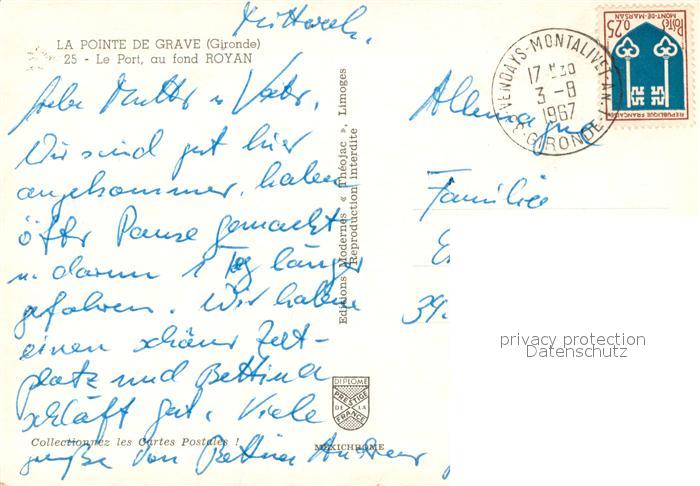 Mittwoch.
LA POINTE DE GRAVE (Gironde)
25 - Le Port, au fond ROYAN
Liebe Mutter u Vater,
Wir sind gut hier
angekommen, haben
öfter Pause gemacht
u. darum 1 Tag länger
gefahren. Wir haben
einen schönen Zelt-
platz und Bettina
schläft gut. Viele
grüße von Bettina
Collectionnez les Cartes Postales !
Editions Modernes « Théojac », Limoges
Reproduction interdite
DIPLOME
PRESTIGE
DE LA
FRANCE
MEXICHROME
VENDAYS-MONTALIVET-AN.1
17 H30
3 -8
1967
GIRONDE
Postes
0,25
MONT-DE-MARSAN
REPUBLIQUE FRANÇAISE
Allemagne
Familie
E
39
privacy protection
Datenschutz